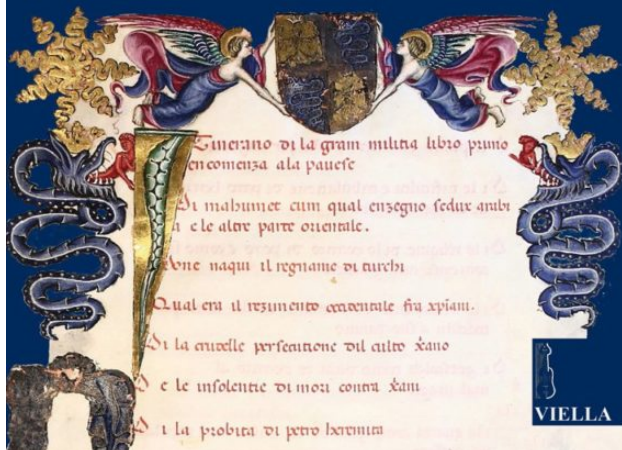 Itinerario di la gram militia libro primo
encomenza ala pavese
Di mahumet cum qual enzegno sedux arabi
a e le altre parte orientale.
Done naqui il regname di turchi
Qual era il rezimento occidentale fra xpiani.
Di la crudelle persecutione dil culto xano
D e le insolentie di mori contra xani
D i la probita di petro heremita
VIELLA